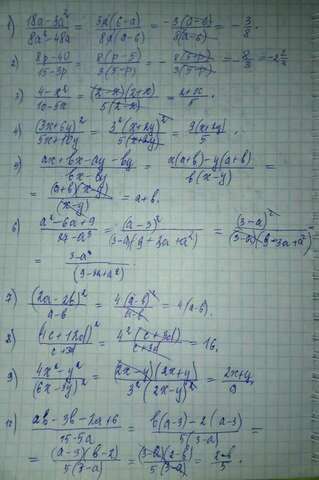 1) (18a-3a²)/(8a²-48a) = 3a(6-a)/8a(a-6) = -3(a-6)/8(a-6) = -3/8.
2) (8p-40)/(15-3p) = 8(p-5)/3(5-p) = -8(5-p)/3(5-p) = -8/3 = -2 2/3
3) (4-x²)/(10-5x) = (2-x)(2+x)/5(2-x) = (2+x)/5.
4) (3x+6y)²/(5x+10y) = 3²(x+2y)²/5(x+2y) = 9(x+2y)/5.
5) (ax+bx-ay-by)/(bx-by) = x(a+b)-y(a+b)/b(x-y) =
= (a+b)(x-y)/(x-y) = a+b.
6) (a²-6a+9)/(27-a³) = (a-3)²/(3-a)(9+3a+a²) = (3-a)²/(3-a)(9+3a+a²) =
= (3-a)/(9+3a+a²)
7) (2a-2b)²/(a-b) = 4(a-b)²/(a-b) = 4(a-b).
8) (4c+12d)²/(c+3d) = 4²(c+3d)/(c+3d) = 16.
9) (4x²-y²)/(6x-3y)² = (2x-y)(2x+y)/3²(2x-y)² = (2x+y)/9
10) (ab-3b-2a+6)/(15-5a) = b(a-3)-2(a-3)/5(3-a) =
= (a-3)(b-2)/5(3-a) = (3-a)(2-b)/5(3-a) = (2-b)/5.